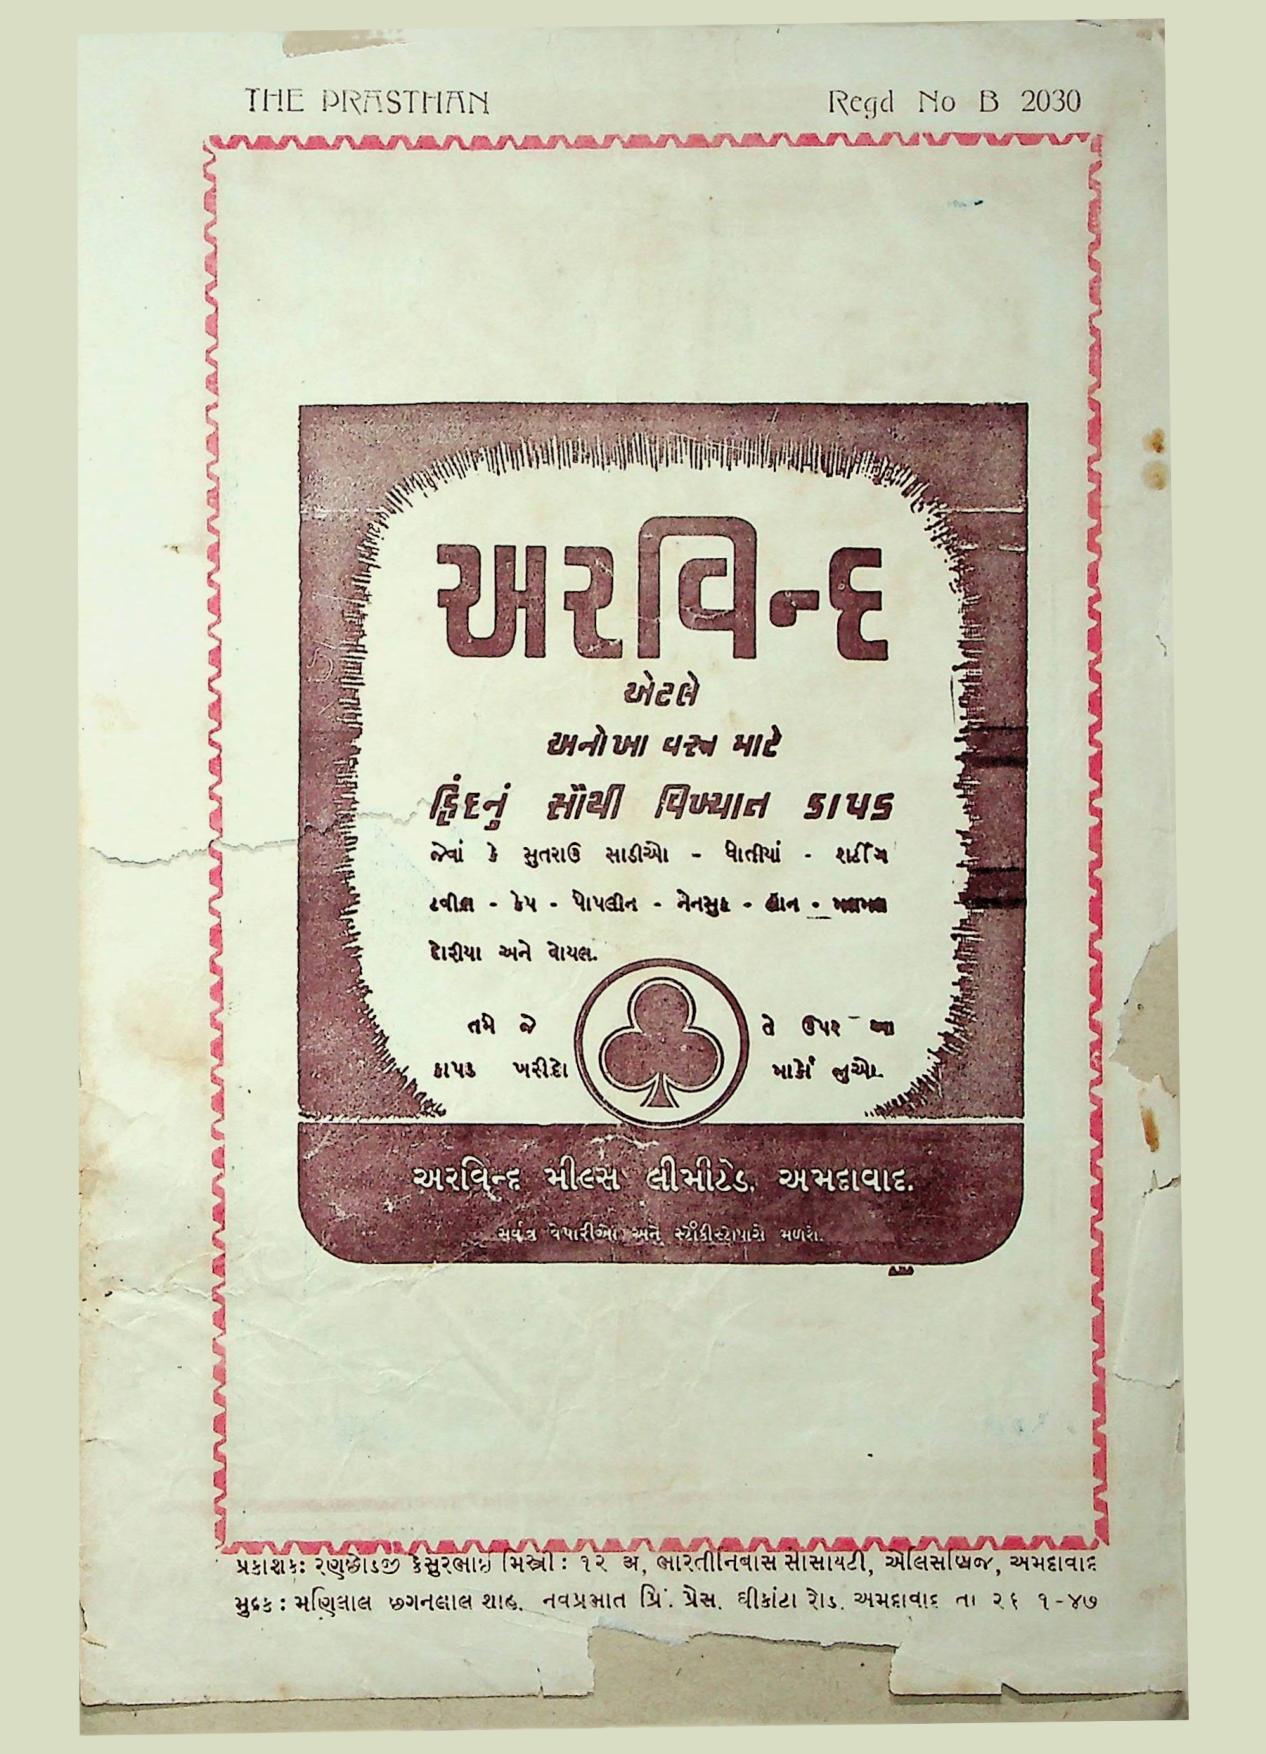 THE PRASTHAN Regd No B 2030
અરવિન્દ
એટલે
અનોખા વસ્ત્ર માટે
હિંદનું સૌથી વિખ્યાત કાપડ
જેવાં કે સુતરાઉ સાડીઓ - ધોતીયાં - શર્ટીંગ
ટવીલ - ક્રેપ - પોપલીન - નેનસુક - લોન - મલમલ
દોરીયા અને વોયલ.
તમે જે તે ઉપર આ
કાપડ ખરીદો માર્કો જુઓ.
અરવિન્દ મીલ્સ લીમીટેડ. અમદાવાદ.
સર્વત્ર વેપારીઓ અને સ્ટોકીસ્ટોપાસે મળશે.
પ્રકાશક: રણછોડજી કેસુરભાઇ મિસ્ત્રી : ૧૨ અ, ભારતીનિવાસ સોસાયટી, એલિસબ્રિજ, અમદાવાદ
મુદ્રક : મણિલાલ છગનલાલ શાહ. નવપ્રભાત પ્રિં. પ્રેસ. ઘીકાંટા રોડ. અમદાવાદ તા ૨૬ ૧-૪૭